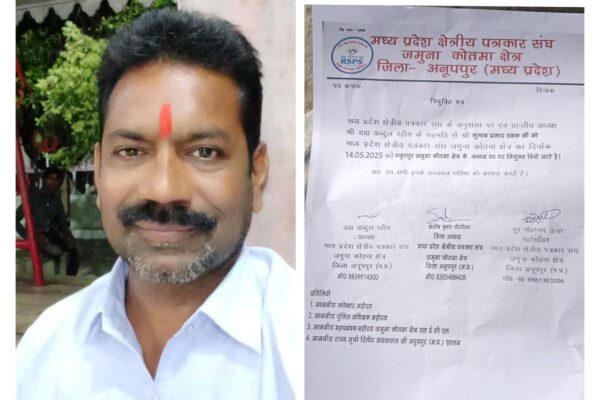 मध्य प्रदेश क्षेत्रीय पत्रकार संघ
जमुना कोतमा क्षेत्र
जिला- अनूपपुर (मध्य प्रदेश)
RSPS
पत्र क्रमांक
दिनांक
नियुक्ति पत्र
मध्य प्रदेश क्षेत्रीय पत्रकार संघ के अनुशंसा पर एवं प्रान्तीय अध्यक्ष
श्री डा0 अब्दुल रहीम के सहमति से श्री गुलाब प्रसाद रजक जी को
मध्य प्रदेश क्षेत्रीय पत्रकार संघ जमुना कोतमा क्षेत्र का दिनांक
14.05.2025 को जमुना कोतमा क्षेत्र के अध्यक्ष पद पर नियुक्त किये जाते है।
हम सभी इनके उज्जवल भविष्य की कामना करते है।
डा0 अब्दुल रहीम
अध्यक्ष
मध्य प्रदेश क्षेत्रीय पत्रकार संघ
जमुना कोतमा क्षेत्र
जिला अनूपपुर (म.प्र.)
मो0 8839914300
संतोष कुमार चौरसिया
जिला अध्यक्ष
मध्य प्रदेश क्षेत्रीय पत्रकार संघ
जमुना कोतमा क्षेत्र
जिला अनूपपुर (म.प्र.)
मो0 8305488408
नूर मोहम्मद
महासचिव
मध्य प्रदेश क्षेत्रीय पत्रकार संघ
जमुना कोतमा क्षेत्र
जिला अनूपपुर (म.प्र.)
मो0 नं0 9981363206
प्रतिलिपि
1. माननीय कलेक्टर महोदय
2. माननीय पुलिस अधिक्षक महोदय
3. माननीय महाप्रबंधक महोदय जमुना कोतमा क्षेत्र एस ई सी एल
4. माननीय राज्य मंत्री दिलीप जायसवाल जी अनूपपुर (म.प्र.) शासन